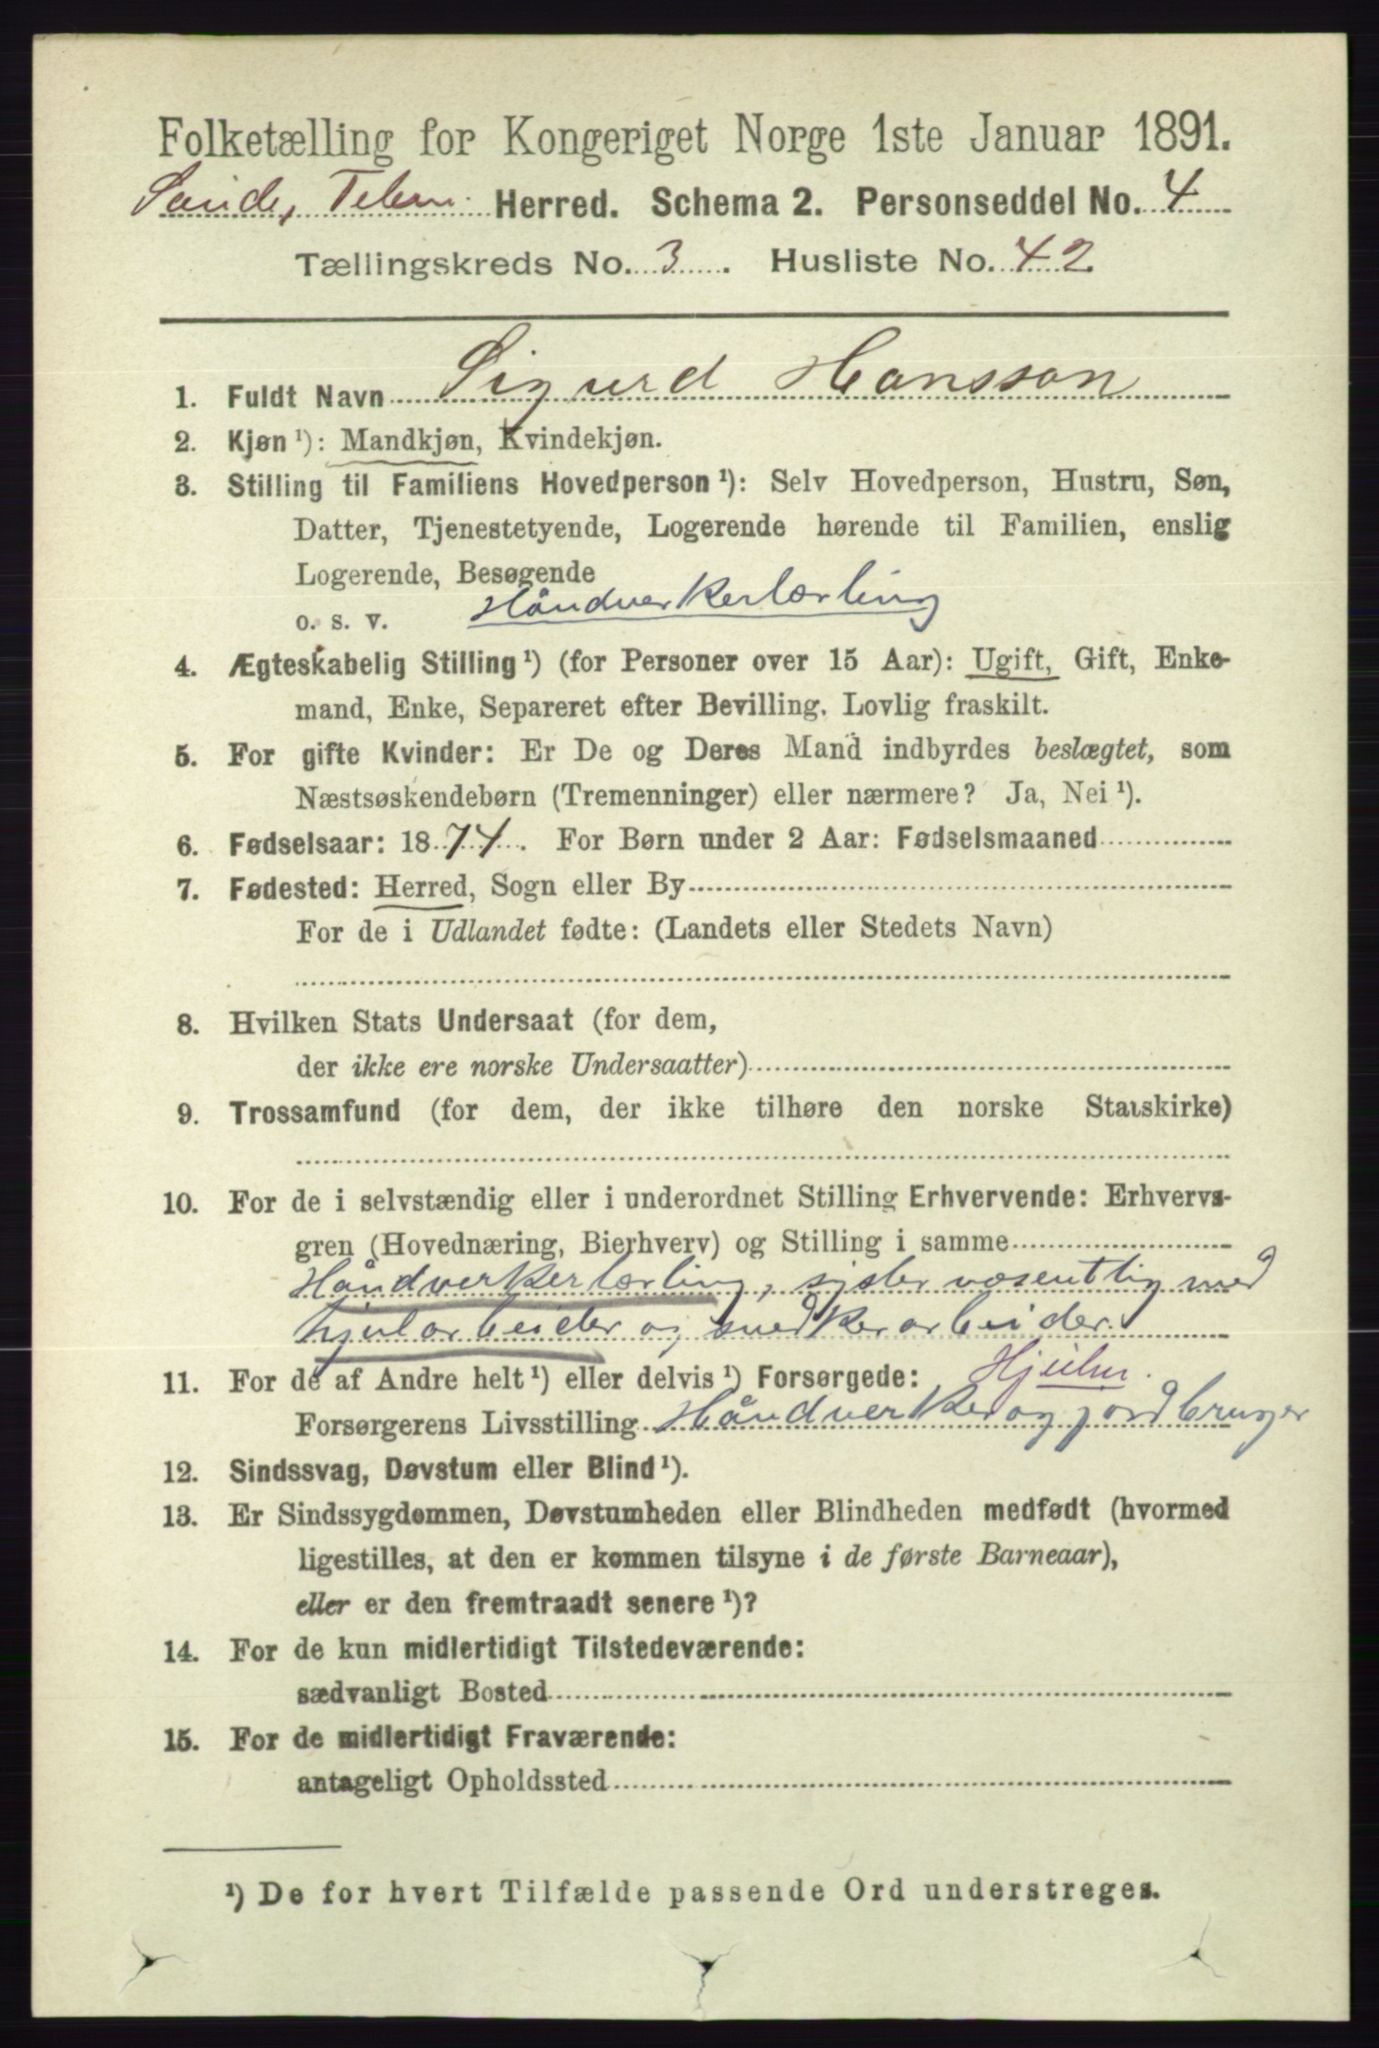 Folketælling for Kongeriget Norge 1ste Januar 1891.
Sande, Telem. Herred. Schema 2. Personseddel No. 4
Tællingskreds No. 3. Husliste No. 42
1. Fuldt Navn Sigurd Hansson
2. Kjøn ¹): Mandkjøn, Kvindekjøn.
3. Stilling til Familiens Hovedperson ¹): Selv Hovedperson, Hustru, Søn,
Datter, Tjenestetyende, Logerende hørende til Familien, enslig
Logerende, Besøgende
o. s. v. Håndverkerlærling
4. Ægteskabelig Stilling ¹) (for Personer over 15 Aar): Ugift, Gift, Enke-
mand, Enke, Separeret efter Bevilling. Lovlig fraskilt.
5. For gifte Kvinder: Er De og Deres Mand indbyrdes beslægtet, som
Næstsøskendebørn (Tremenninger) eller nærmere? Ja, Nei ¹).
6. Fødselsaar: 1874. For Børn under 2 Aar: Fødselsmaaned
7. Fødested: Herred, Sogn eller By
For de i Udlandet fødte: (Landets eller Stedets Navn)
8. Hvilken Stats Undersaat (for dem,
der ikke ere norske Undersaatter)
9. Trossamfund (for dem, der ikke tilhøre den norske Statskirke)
10. For de i selvstændig eller i underordnet Stilling Erhvervende: Erhvervs-
gren (Hovednæring, Bierhverv) og Stilling i samme
Håndverkerlærling, sysler væsentlig med
hjularbeider og snedkerarbeider.
11. For de af Andre helt ¹) eller delvis ¹) Forsørgede: Hjulm.
Forsørgerens Livsstilling Håndverker og jordbruger
12. Sindssvag, Døvstum eller Blind ¹).
13. Er Sindssygdommen, Døvstumheden eller Blindheden medfødt (hvormed
ligestilles, at den er kommen tilsyne i de første Barneaar),
eller er den fremtraadt senere ¹)?
14. For de kun midlertidigt Tilstedeværende:
sædvanligt Bosted
15. For de midlertidigt Fraværende:
antageligt Opholdssted
¹) De for hvert Tilfælde passende Ord understreges.